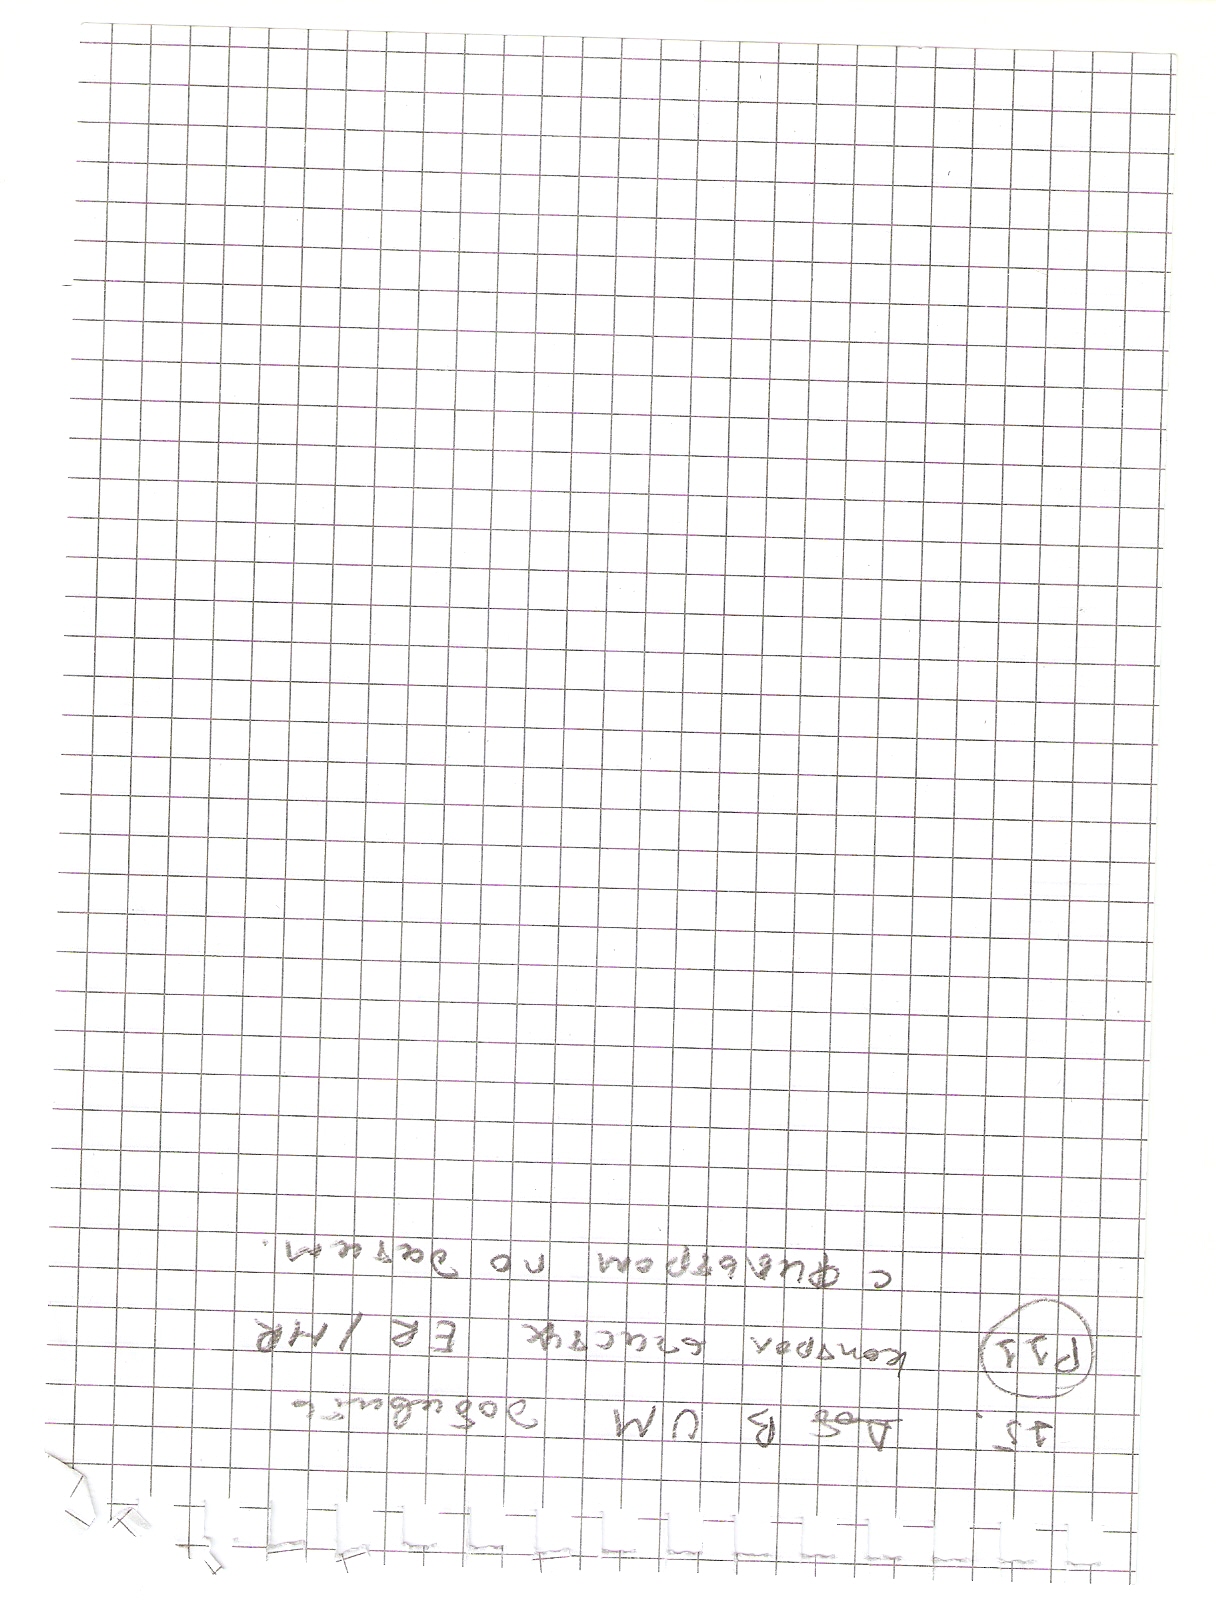 15. Доб В UM добавить
P11 контрол очистк ER / HR
с фильтром по датам.